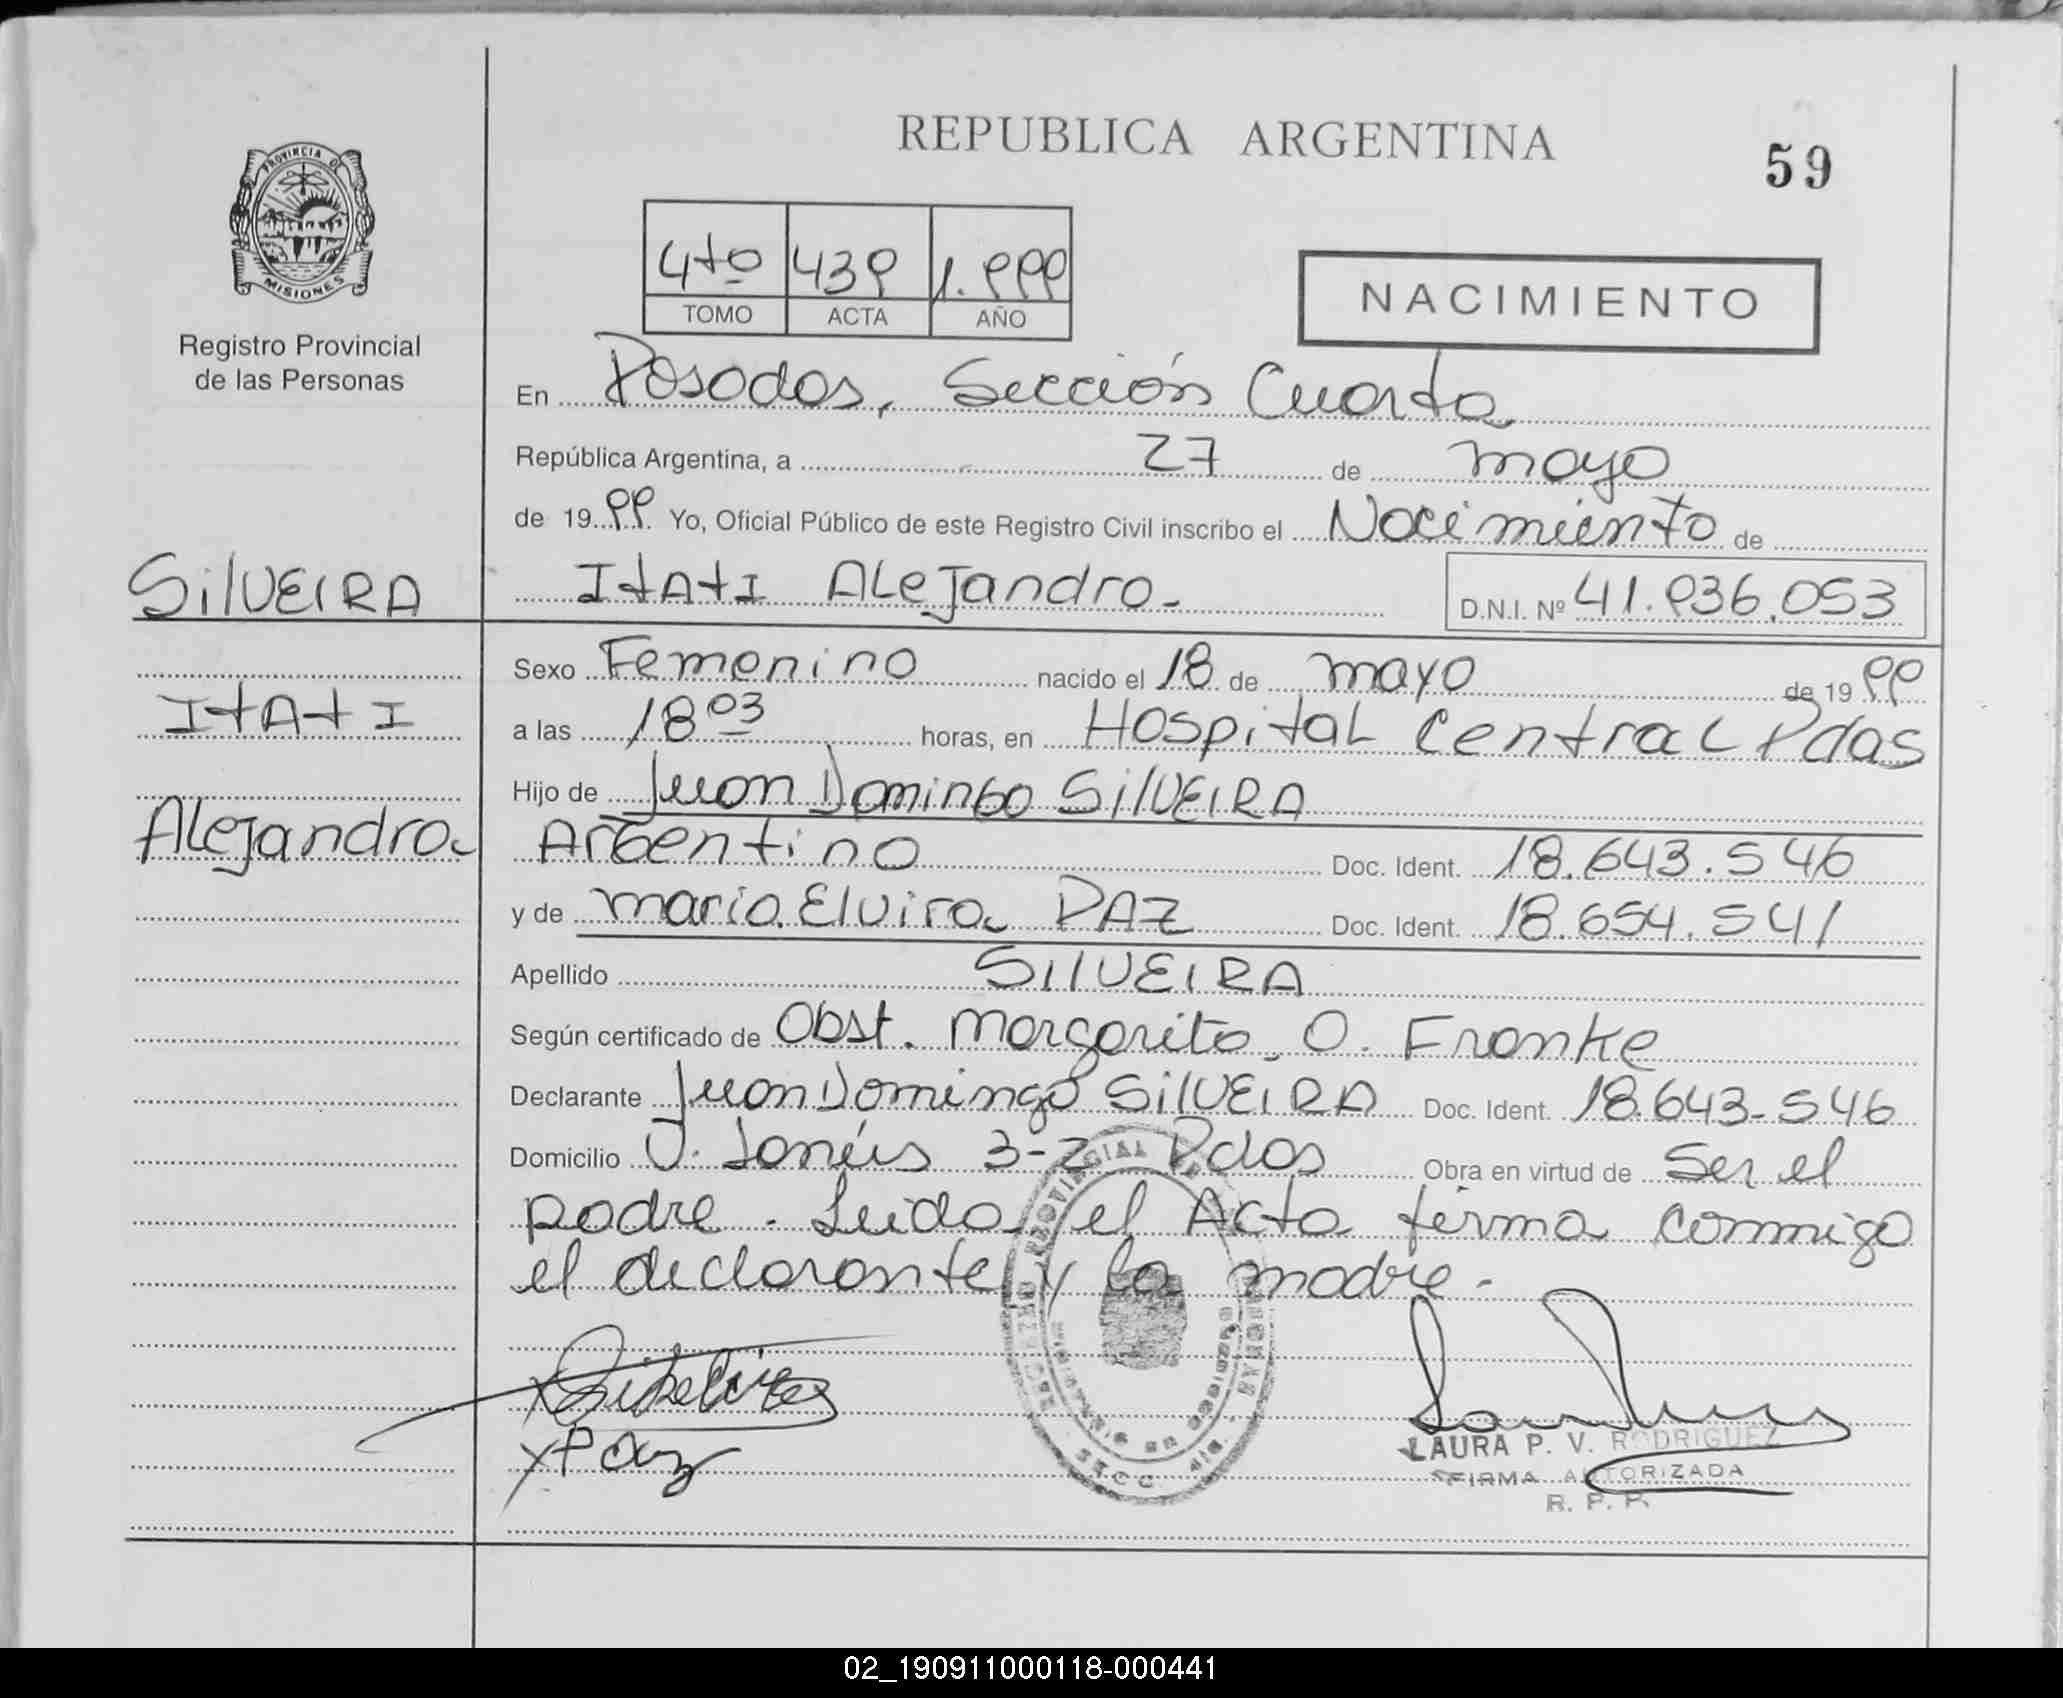 REPUBLICA ARGENTINA
59
PROVINCIA DE
MISIONES
Registro Provincial
de las Personas
4to 439 1.999
TOMO ACTA AÑO
NACIMIENTO
En Posadas, Sección Cuarta
República Argentina, a 27 de mayo
de 1999 Yo, Oficial Público de este Registro Civil inscribo el Nacimiento de
SilVEIRA
ItAtI Alejandra-
D.N.I. Nº 41.936.053
ItAtI
Alejandra
Sexo Femenino nacido el 18 de mayo de 1999
a las 18 03 horas, en Hospital Central Pdas
Hijo de Juan Domingo SilVEIRA
Argentino Doc. Ident. 18.643.546
y de Maria Elvira PAZ Doc. Ident. 18.654.541
Apellido SIlVEIRA
Según certificado de Obst. Margarita O. Franke
Declarante Juan Domingo SilVEIRA Doc. Ident. 18.643-546
Domicilio 3-2 Pdas Obra en virtud de Ser el
padre - Leida el Acta firma conmigo
el declarante y la madre-
REGISTRO PROVINCIAL DE
SECC. 4ta.
Paz
LAURA P. V. RODRIGUEZ
FIRMA AUTORIZADA
R. P. P.
02_190911000118-000441